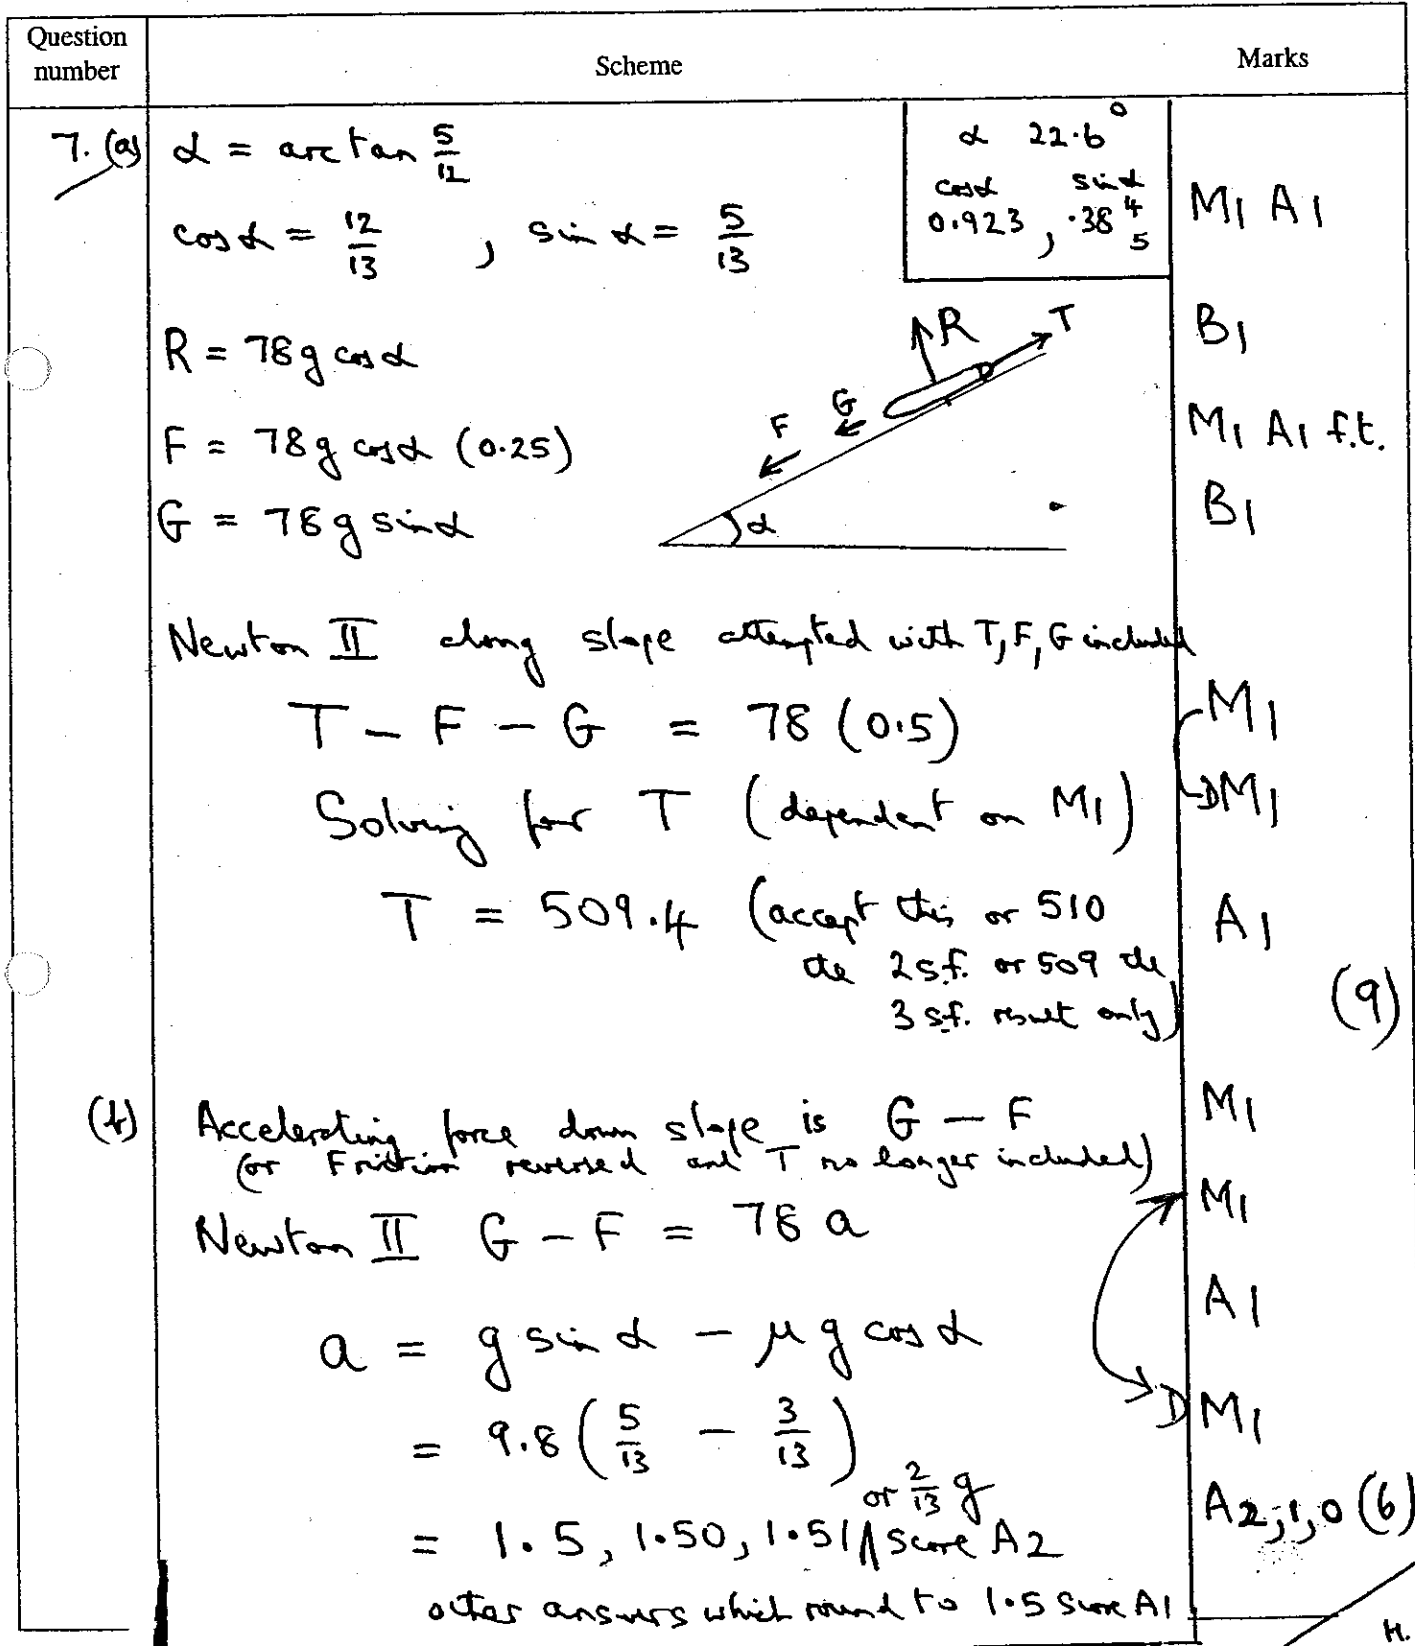 Question number
Scheme
Marks
7. (a)
α = arctan 5/12
α 22.6°
cosα sinα
0.923 , .38 4/5
M1 A1
cosα = 12/13 , sinα = 5/13
R = 78g cosα
B1
R
T
G
F
α
F = 78g cosα (0.25)
M1 A1 f.t.
G = 78g sinα
B1
Newton II along slope attempted with T, F, G included
T - F - G = 78 (0.5)
M1
Solving for T (dependent on M1)
DM1
T = 509.4 (accept this or 510
A1
the 2 s.f. or 509 the
3 s.f. result only)
(9)
(b)
Accelerating force down slope is G - F
M1
(or Friction reversed and T no longer included)
Newton II G - F = 78 a
M1
A1
a = g sinα - μ g cosα
= 9.8 (5/13 - 3/13)
DM1
or 2/13 g
= 1.5, 1.50, 1.51 score A2
A2,1,0 (6)
other answers which round to 1.5 score A1
H.